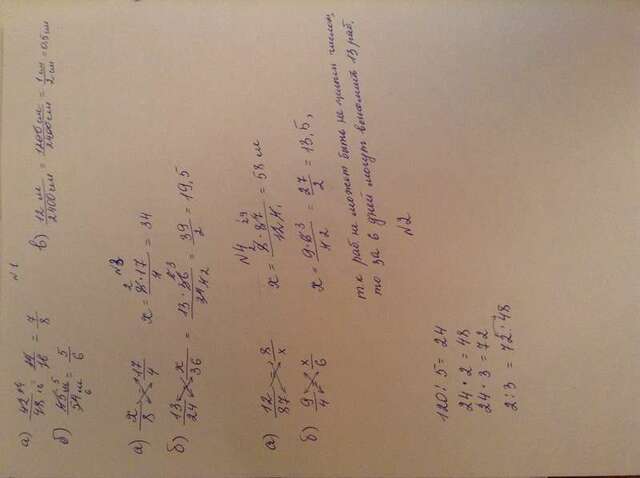 №1
а) 42/48 = 14/16 = 7/8
в) 12 м/2400 см = 1200 см/2400 см = 1 см/2 см = 0,5 см
б) 45 м/54 м = 5/6
№3
а) x/8 = 17/4 x = 8·17/4 = 34
б) 13/24 = x/36 = 13·36/24 = 39/2 = 19,5
№4
а) 12/87 = 8/x x = 8·87/12 = 58 м
б) 9/4 = x/6 x = 9·6/4 = 27/2 = 13,5,
т.к раб не может быть не целым числом,
то за 6 дней могут выполнить 13 раб.
№2
120 : 5 = 24
24 · 2 = 48
24 · 3 = 72
2 : 3 = 72 : 48